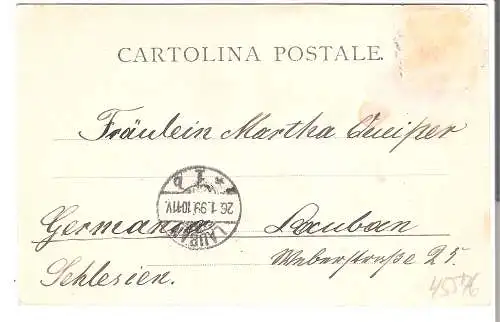 CARTOLINA POSTALE.
Fräulein Martha Queißer
LAUBAN
26.1.99.10-11V.
Germania Lauban
Weberstraße 25.
Schlesien.